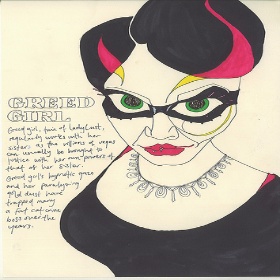 GREED
GIRL
Greed girl, twin of LadyLust,
regularly works with her
sister. as the villans of vegas
can usually be bought to
justice with her own powers of
that of her sister.
Greed girl's hypnotic gaze
and her paralysing
gold dust have
trapped many
a fat cat casino
boss over the
years.